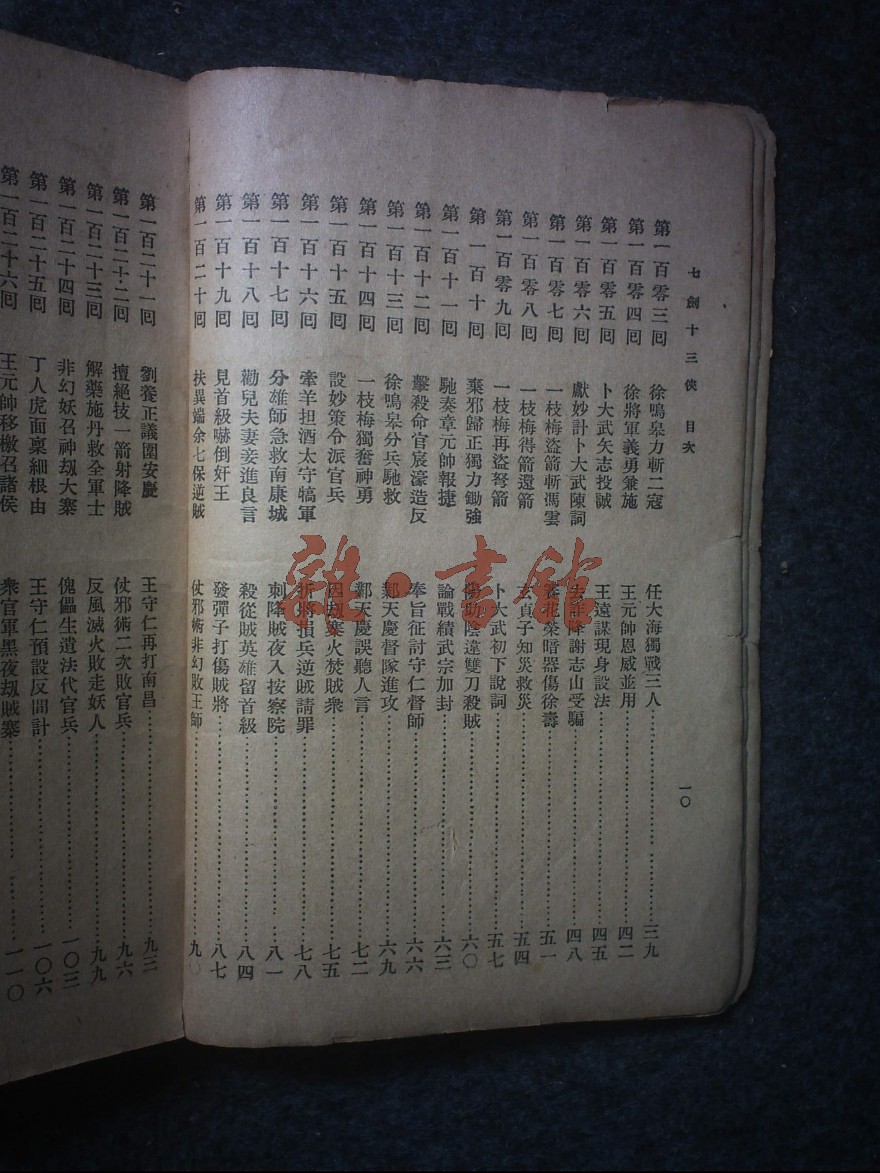 七劍十三俠 目次
一〇
第一百零三囘 徐鳴皋力斬二寇 任大海獨戰三人 三九
第一百零四囘 徐將軍義勇兼施 王元帥恩威並用 四二
第一百零五囘 卜大武矢志投誠 王遠謀現身設法 四五
第一百零六囘 獻妙計卜大武陳詞 去詐降謝志山受騙 四八
第一百零七囘 一枝梅盜箭斬馮雲 花榮暗器傷徐壽 五一
第一百零八囘 一枝梅得箭還箭 玄貞子知災救災 五四
第一百零九囘 一枝梅再盜弩箭 卜大武初下說詞 五七
第一百十囘 棄邪歸正獨力鋤強 陰違雙刀殺賊 六〇
第一百十一囘 馳奏章元帥報捷 論戰績武宗加封 六三
第一百十二囘 擊殺命官宸濠造反 奉旨征討守仁督師 六六
第一百十三囘 徐鳴皋分兵馳救 鄴天慶督隊進攻 六九
第一百十四囘 一枝梅獨奮神勇 鄴天慶誤聽人言 七二
第一百十五囘 設妙策令派官兵 因刼寨火焚賊衆 七五
第一百十六囘 牽羊担酒太守犒軍 折將損兵逆賊請罪 七八
第一百十七囘 分雄師急救南康城 刺降賊夜入按察院 八一
第一百十八囘 勸兒夫妻妾進良言 殺從賊英雄留首級 八四
第一百十九囘 見首級嚇倒奸王 發彈子打傷賊將 八七
第一百二十囘 扶異端余七保逆賊 仗邪術非幻敗王師 九〇
第一百二十一囘 劉養正議圍安慶 王守仁再打南昌 九三
第一百二十二囘 擅絕技一箭射降賊 仗邪術二次敗官兵 九六
第一百二十三囘 解藥施丹救全軍士 反風滅火敗走妖人 九九
第一百二十四囘 非幻妖召神刼大寨 傀儡生遣法代官兵 一〇三
第一百二十五囘 丁人虎面稟細根由 王守仁預設反間計 一〇六
第一百二十六囘 王元帥移檄召諸侯 衆官軍黑夜刼賊寨 一一〇
雜·書館